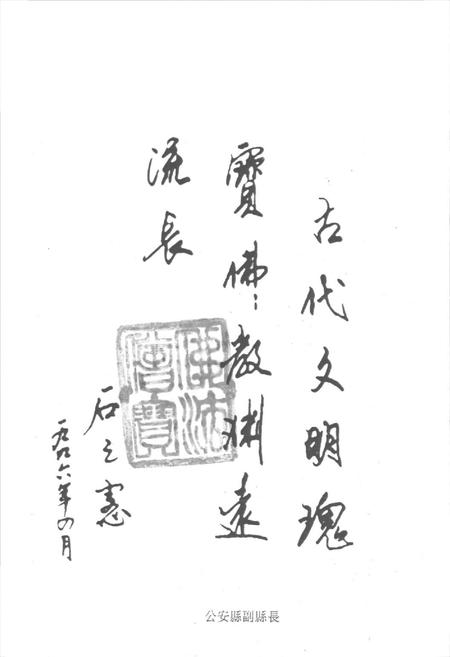 古代文明瑰
寶佛教渊遠
流長
石之憲
一九九六年四月
佛法僧寶
公安縣副縣長